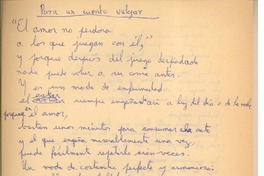 Para un cuento vulgar
"El amor no perdona
a los que juegan con él,"
y porque después del juego despiadado
nada puede volver a ser como antes.
Y es un modo de enfermedad
el estar siempre a luz del día o de la noche
porque el amor,
bastan unos minutos para
y el que engaña miserablemente una vez,
puede fácilmente repetirlo cien veces.
Un modo de costumbre, perfecto y